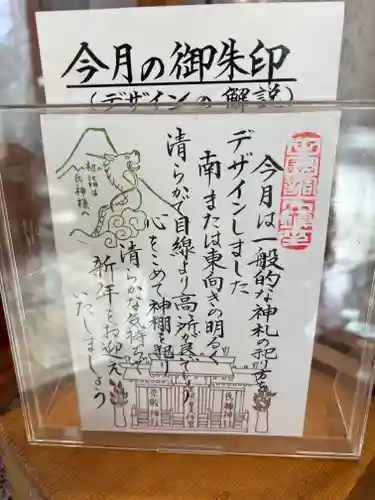 今月の御朱印
(デザインの解説)
今月は一般的な神札の祀り方を
デザインしました
南または東向きの明るく
清らかで目線より高い所が良でしょう
心をこめて神棚を祀り
清らかな気持ちで
新年をお迎え
いたしましょう
初詣は
氏神様へ
崇敬神社
氏神神社